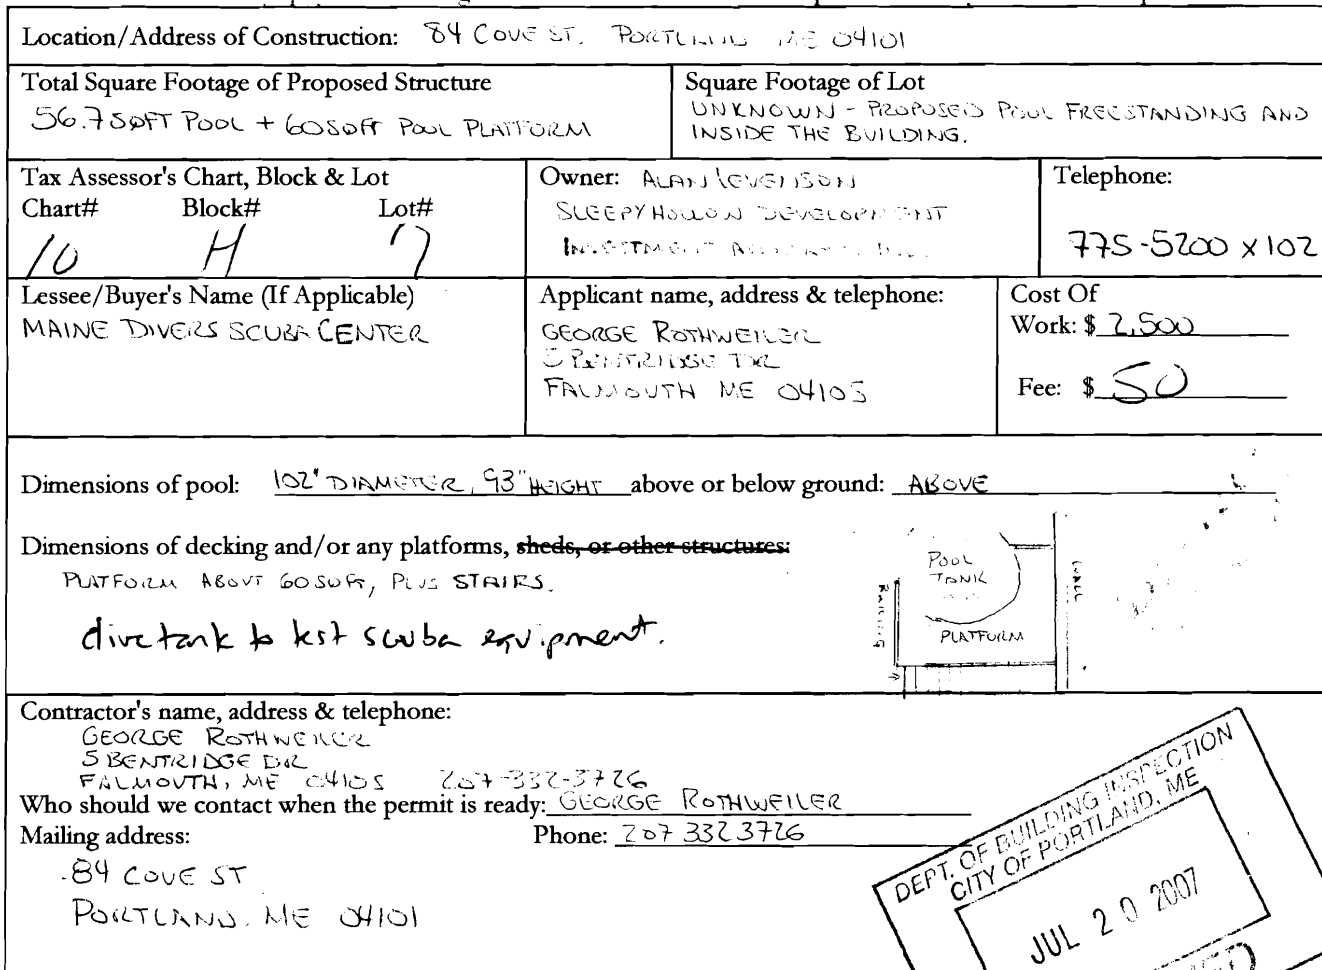 Location/Address of Construction: 84 COVE ST. PORTLAND ME 04101
Total Square Footage of Proposed Structure
56.7 SQFT POOL + 60 SQFT POOL PLATFORM
Square Footage of Lot
UNKNOWN - PROPOSED POOL FREESTANDING AND
INSIDE THE BUILDING.
Tax Assessor's Chart, Block & Lot
Chart# Block# Lot#
10 H 7
Owner: ALAN LEVENSON
SLEEPY HOLLOW DEVELOPMENT
INVESTMENT
Telephone:
775-5200 x 102
Lessee/Buyer's Name (If Applicable)
MAINE DIVERS SCUBA CENTER
Applicant name, address & telephone:
GEORGE ROTHWEILER
5 BENTRIDGE DR
FALMOUTH ME 04105
Cost Of
Work: $ 2,500
Fee: $ 50
Dimensions of pool: 102" DIAMETER, 93" HEIGHT above or below ground: ABOVE
Dimensions of decking and/or any platforms, sheds, or other structures:
PLATFORM ABOUT 60 SQFT, PLUS STAIRS.
divetank to test scuba equipment.
POOL
TANK
RAILING
WALL
PLATFORM
Contractor's name, address & telephone:
GEORGE ROTHWEILER
5 BENTRIDGE DR
FALMOUTH, ME 04105 207-332-3726
Who should we contact when the permit is ready: GEORGE ROTHWEILER
Mailing address: Phone: 207 332 3726
84 COVE ST
PORTLAND, ME 04101
DEPT. OF BUILDING INSPECTION
CITY OF PORTLAND, ME
JUL 20 2007